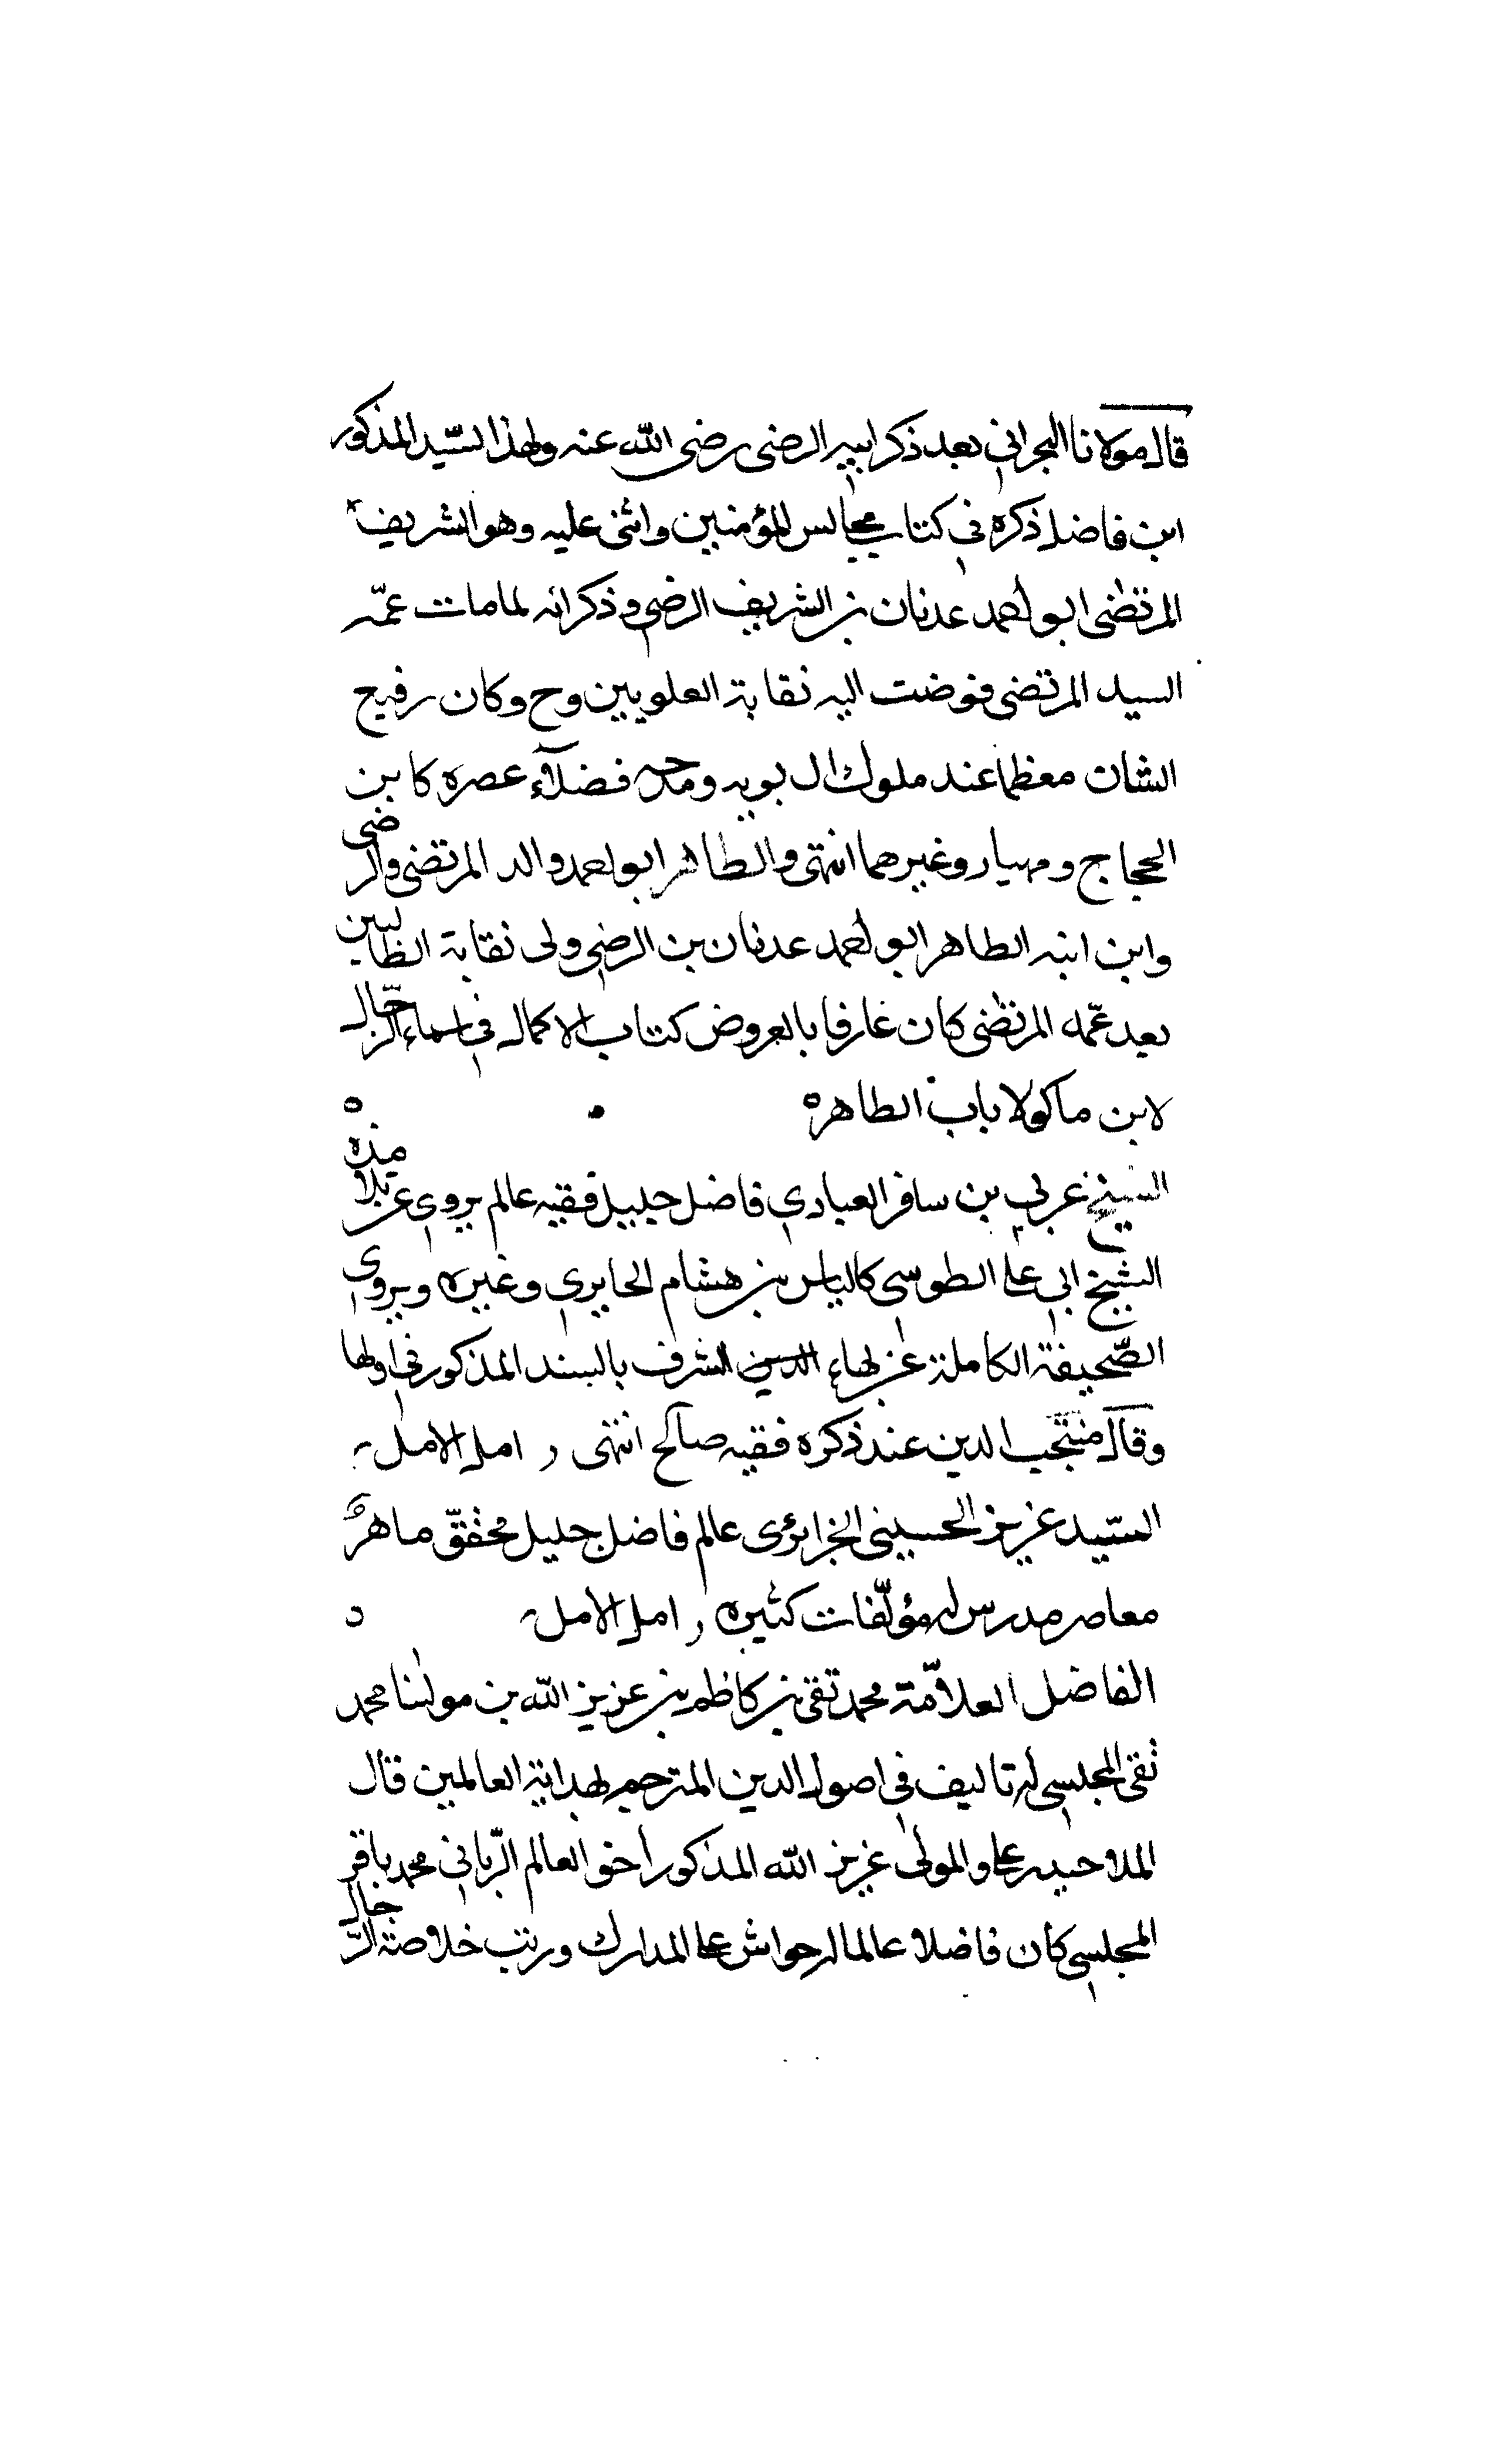 قال مولانا البحراني بعد ذكر ابيه الرضى رضى الله عنه ولهذا السّيد المذكور
ابن فاضل ذكره في كتاب مجالس المؤمنين واثنى عليه وهو الشريف
المرتضى ابو احمد عدنان بن الشريف الرضي وذكر انه لما مات عمّه
السيد المرتضى فوضت اليه نقابة العلويين وح وكان رفيع
الشان معظما عند ملوك ال بويه ومدحه فضلآء عصره كابن
الحجاج ومهيار وغيرهما انتهى والطاهر ابو احمد والد المرتضى والرضى
وابن ابنه الطاهر ابو احمد عدنان بن الرضي ولى نقابة الطالبين
بعد عمّه المرتضى كان عارفا بالعروض كتاب الاكمال في اسماء الرّجال
لابن ماكولا باب الطاهر ه
الشيخ عربي بن سافر العبادي فاضل جليل فقيه عالم يروي عن تلامذه
الشيخ ابي على الطوسي كالياس بن هشام الحايري وغيره ويروي
الصّحيفة الكاملة عن بهاء الشرف بالسند المذكور في اولها
وقال منتجب الدين عند ذكره فقيه صالح انتهى امل الامل
السّيد عزيز الحسيني الجزائرى عالم فاضل جليل محقّق ماهر
معاصر مدرس له مؤلّفات كثيره امل الامل
الفاضل العلاّمة محمد تقى بن كاظم بن عزيز الله بن مولنا محمد
تقي المجلسي له تاليف في اصول الدين المترجم بهداية العالمين قال
الملا حيدر على والمولى عزيز الله المذكور اخو العالم الرّباني محمد باقر
المجلسي كان فاضلا عالما له حواش على المدارك ورتب خلاصة الرّجال